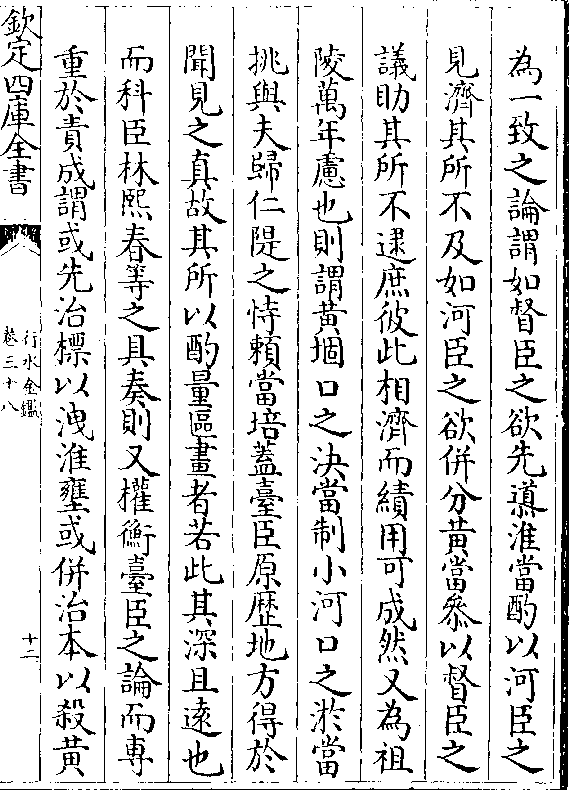 為一致之論謂如督臣之欲先導淮當酌以河臣之
見濟其所不及如河臣之欲併分黃當叅以督臣之
議助其所不逮庶彼此相濟而績用可成然又為祖
陵萬年慮也則謂黃堌口之決當制小河口之淤當
挑與夫歸仁隄之恃賴當培蓋臺臣原歴地方得於
聞見之真故其所以酌量區畫者若此其深且遠也
而科臣林熙春等之具奏則又權衡臺臣之論而專
重於責成謂或先治標以洩淮壅或併治本以殺黃
欽定四庫全書
行水金鑑
卷三十八
十二